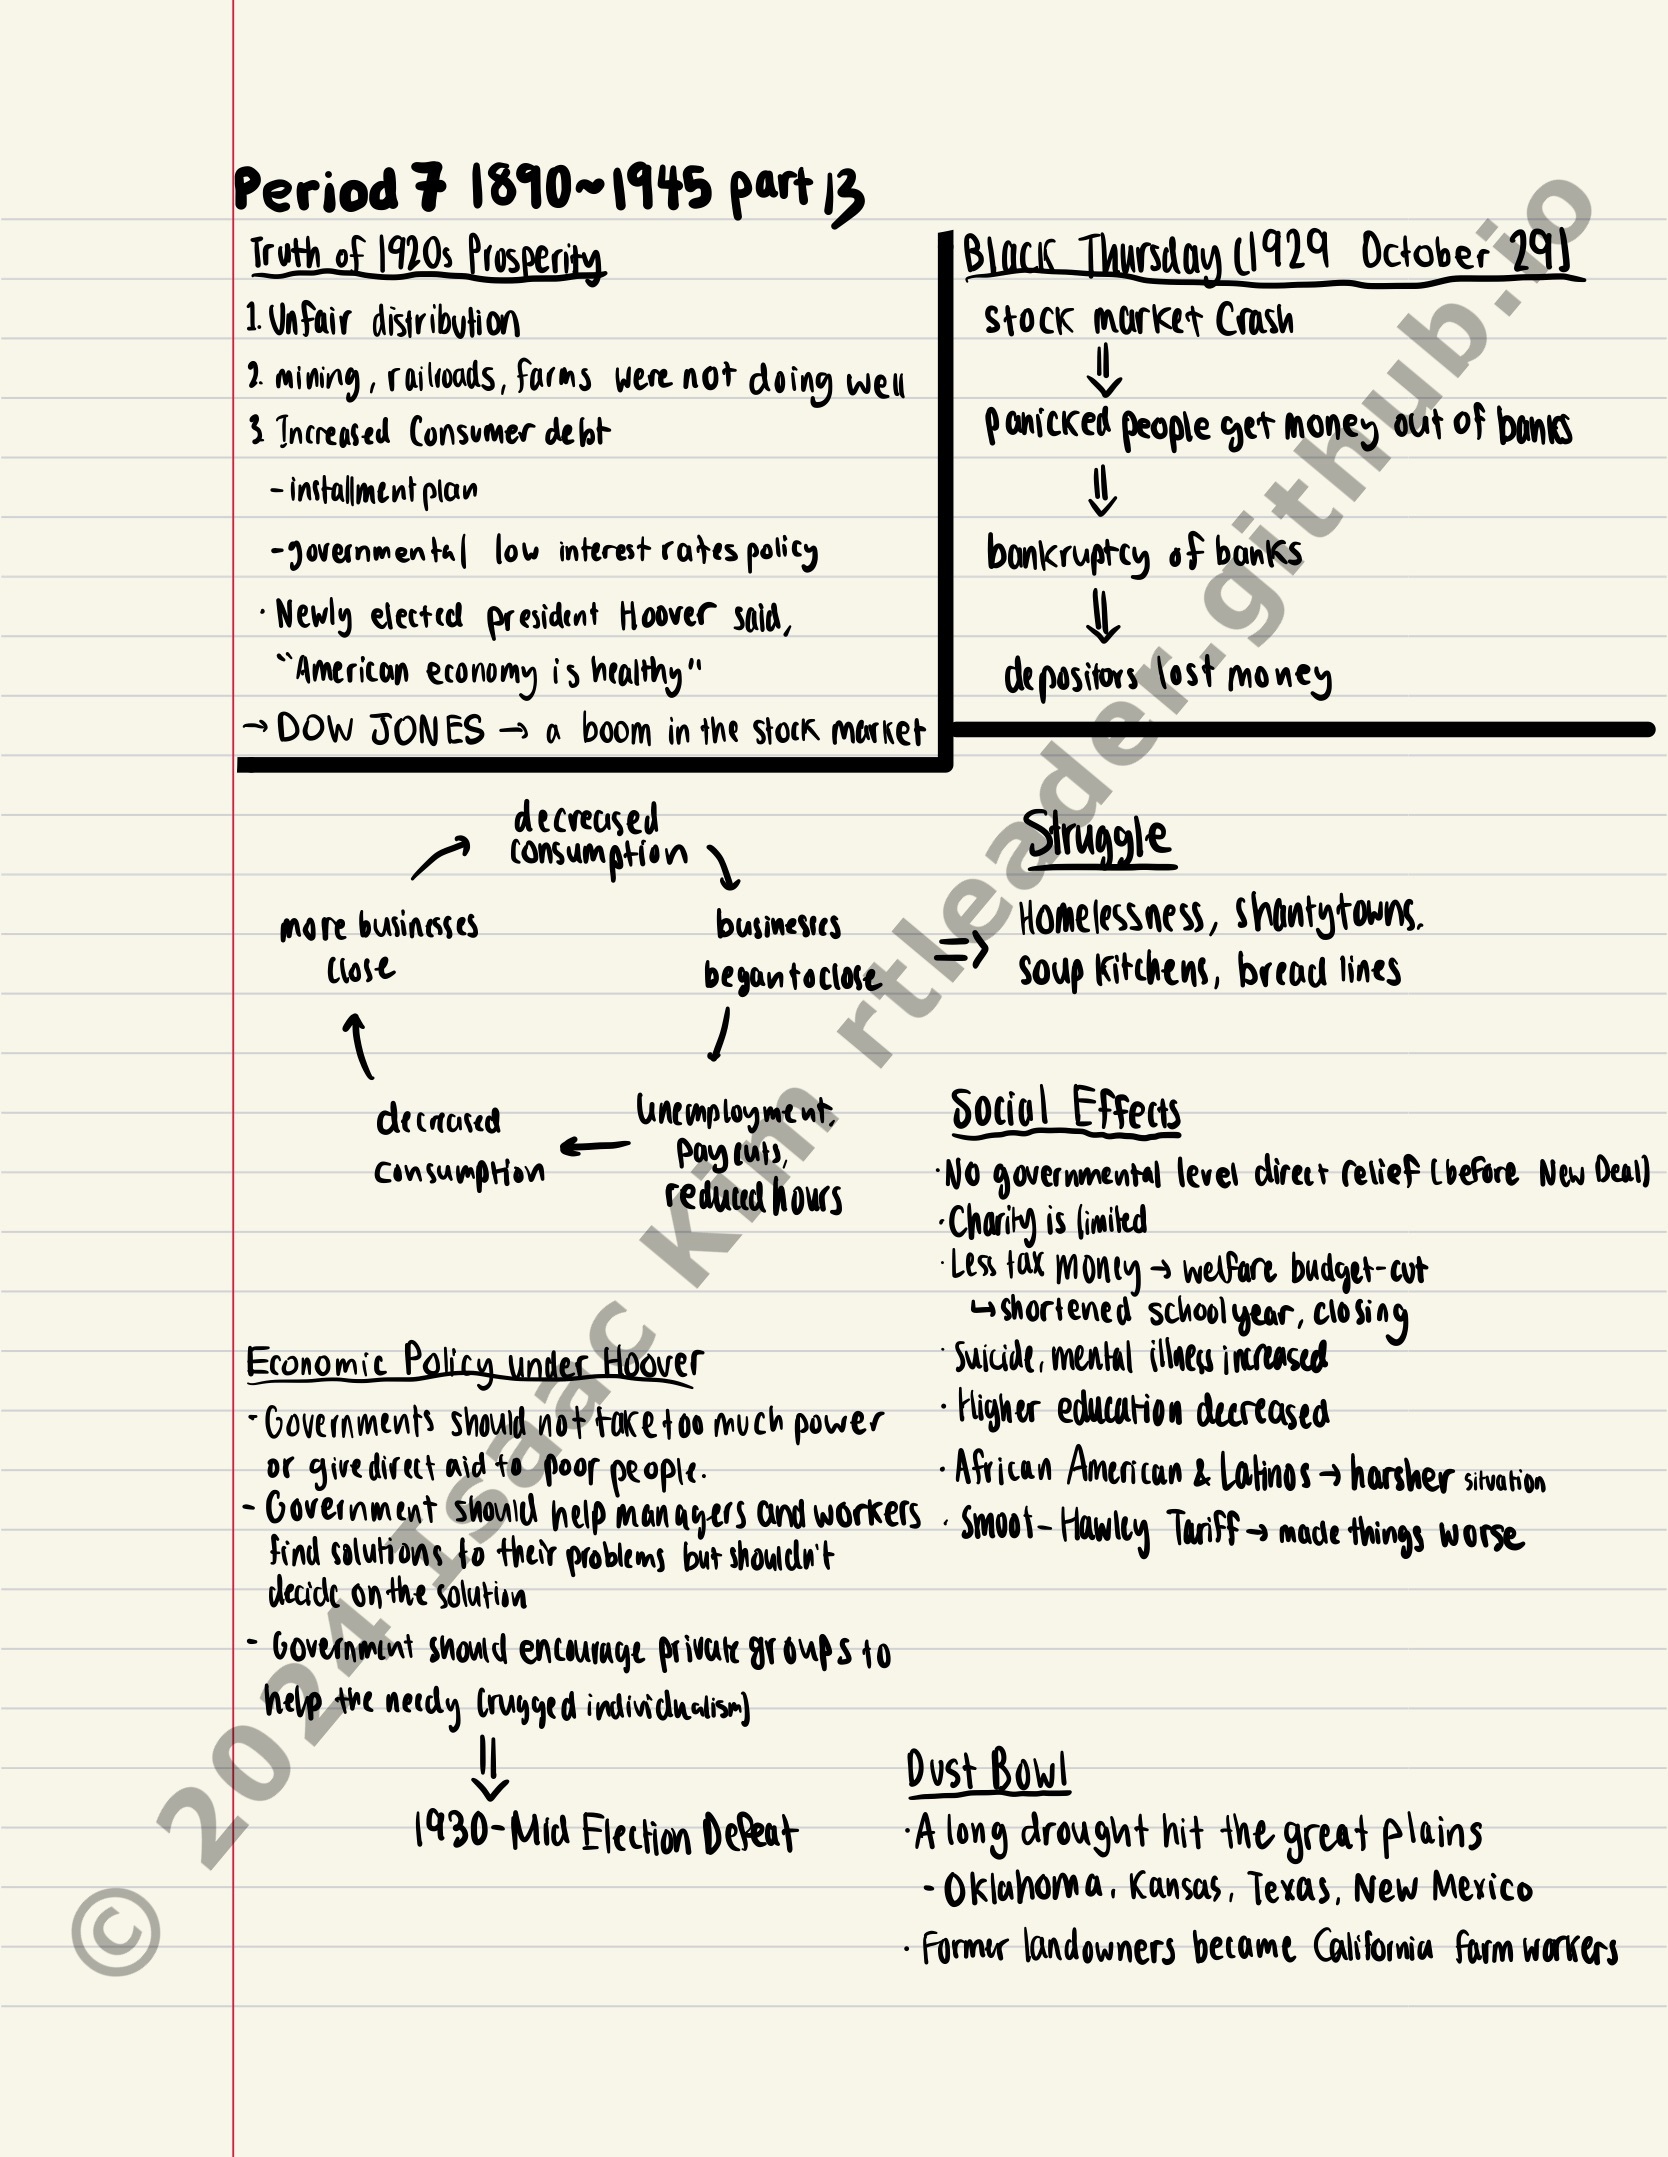 Period 7 1890~1945 part 13
Truth of 1920s Prosperity
1. Unfair distribution
2. mining, railroads, farms were not doing well
3. Increased Consumer debt
- installment plan
- governmental low interest rates policy
· Newly elected president Hoover said,
"American economy is healthy"
→ DOW JONES → a boom in the stock market
Black Thursday (1929 October 29)
stock market Crash
⇓
panicked people get money out of banks
⇓
bankruptcy of banks
⇓
depositors lost money
decreased
consumption
businesses
began to close
Unemployment,
pay cuts,
reduced hours
decreased
consumption
more businesses
close
⇒
Struggle
Homelessness, shantytowns.
soup kitchens, bread lines
Social Effects
· No governmental level direct relief (before New Deal)
· Charity is limited
· Less tax money → welfare budget-cut
↳ shortened school year, closing
· Suicide, mental illness increased
· Higher education decreased
· African American & Latinos → harsher situation
· Smoot-Hawley Tariff → made things worse
Economic Policy under Hoover
- Governments should not take too much power
or give direct aid to poor people.
- Government should help managers and workers
find solutions to their problems but shouldn't
decide on the solution
- Government should encourage private groups to
help the needy (rugged individualism)
⇓
1930-Mid Election Defeat
Dust Bowl
· A long drought hit the great plains
- Oklahoma, Kansas, Texas, New Mexico
· Former landowners became California farm workers
© 2024 Isaac Kim rtleader.github.io